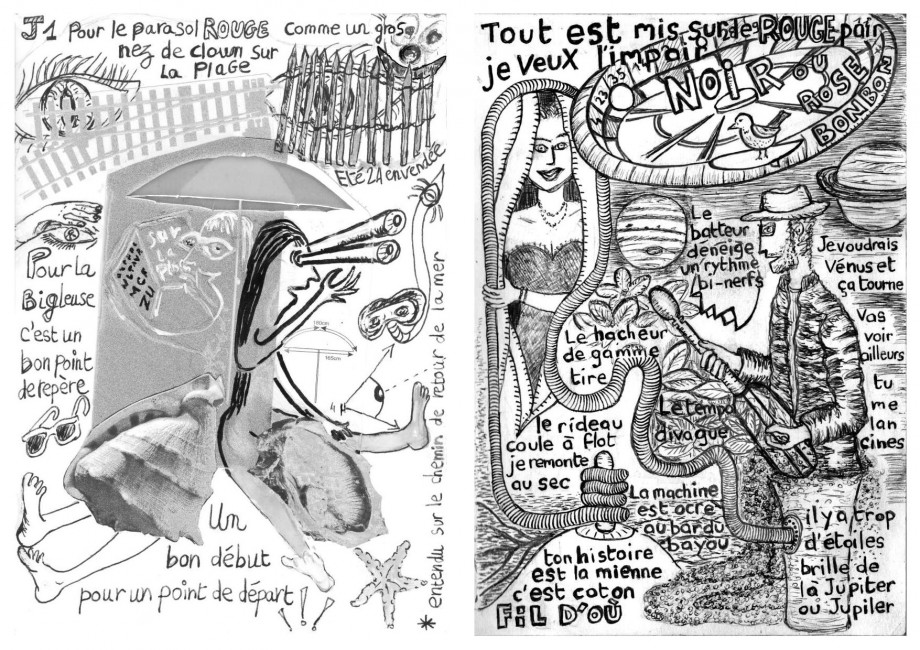 J1 Pour le parasol ROUGE comme un gros
nez de clown sur
La PLAGE
Eté 24 en vendée
Pour la
Bigleuse
c'est un
bon point
de repère
sur
LA
160cm
165cm
Un
bon début
pour un point de départ !!!
* entendu sur le chemin de retour de la mer
Tout est mis sur le ROUGE pair
je veux l'impair
23 35
NOIR OU
ROSE
BONBON
Le
batteur
déneige
un rythme
bi-nerfs
Je voudrais
Vénus et
ça tourne
Vas
voir
ailleurs
tu
me
lan
cines
Le hacheur
de gamme
tire
Le tempo
divague
le rideau
coule à flot
je remonte
au sec
La machine
est ocre
au bar du
bayou
il y a trop
d'étoiles
brille de
là Jupiter
ou Jupiler
ton histoire
est la mienne
c'est coton
FIL D'OÙ